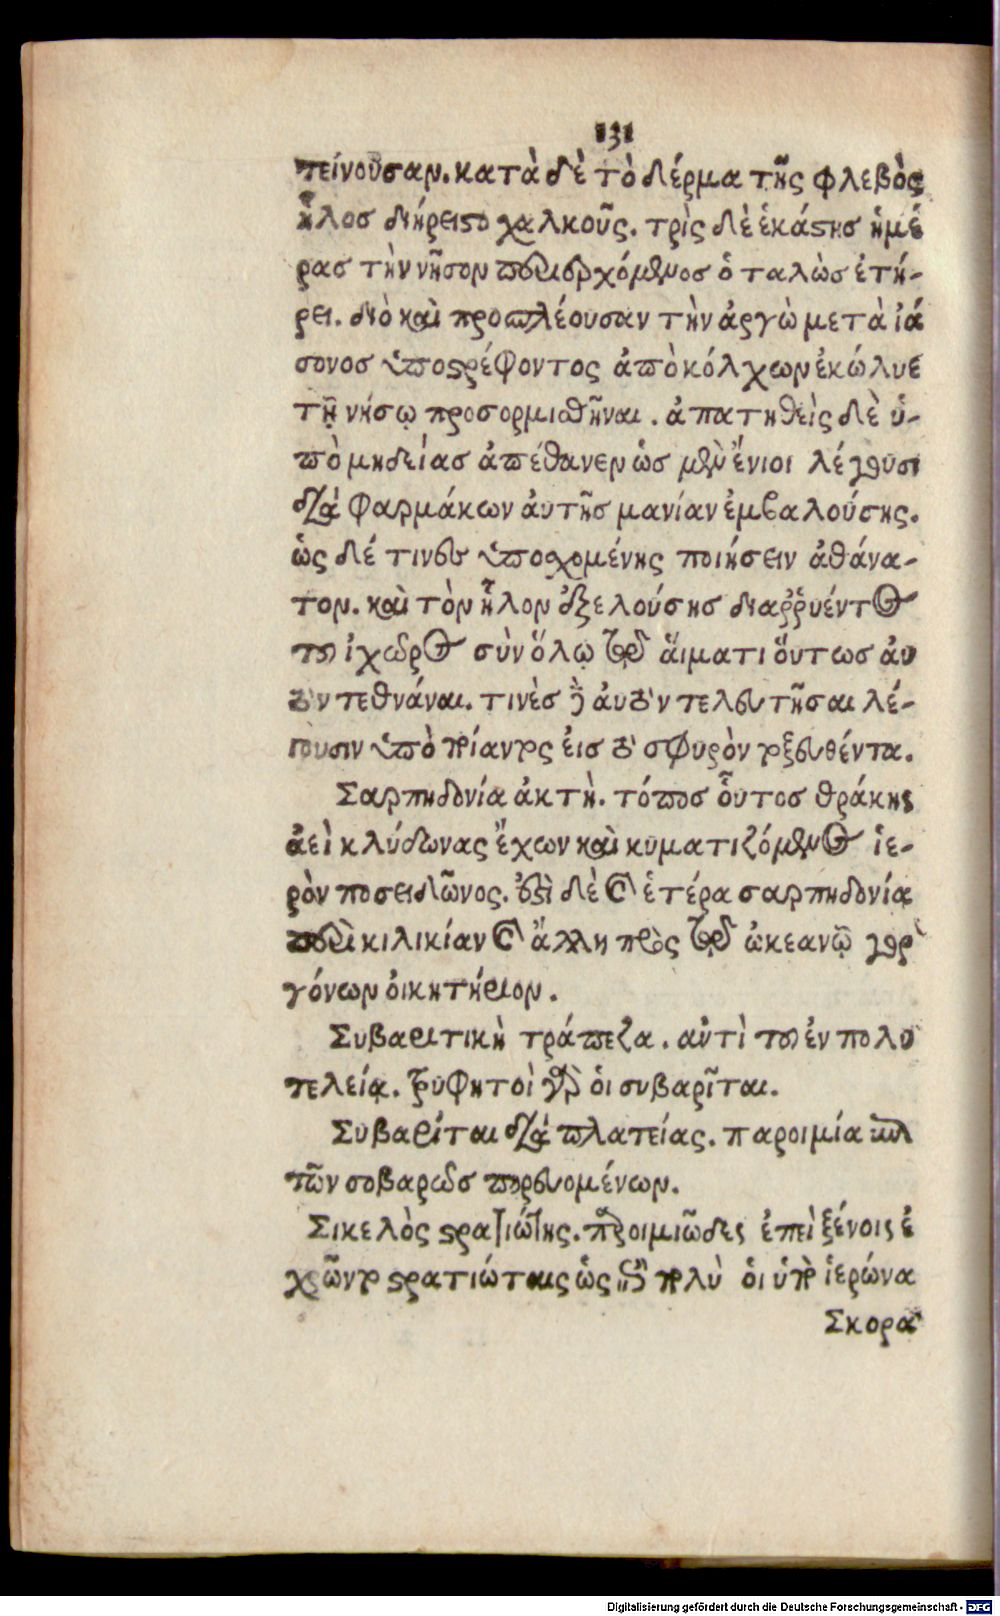 131
τείνουσαν. κατὰ δὲ τὸ δέρμα τῆς φλεβὸς
ἧλος διήρειστο χαλκοῦς. τρὶς δὲ ἑκάστης ἡμέ
ρας τὴν νῆσον περιερχόμενος ὁ ταλὼς ἐτή-
ρει. διὸ καὶ προσπλέουσαν τὴν ἀργὼ μετὰ ἰά
σονος ὑποστρέφοντος ἀπὸ κόλχων ἐκώλυε
τῇ νήσῳ προσορμισθῆναι. ἀπατηθεὶς δὲ ὑ-
πὸ μηδείας ἀπέθανεν ὡς μὲν ἔνιοι λέγουσι
διὰ φαρμάκων ἀυτῆς μανίαν ἐμβαλούσης.
ὡς δέ τινες ὑποσχομένης ποιήσειν ἀθάνα-
τον. καὶ τὸν ἧλον ἐξελούσης διαῤῥυέντος
τοῦ ἰχῶρος σὺν ὅλῳ τῷ ἅιματι ὅυτως ἀυ
τὸν τεθνάναι. τινὲς δὲ ἀυτὸν τελευτῆσαι λέ-
γουσιν ὑπὸ πίαντος ἐις τὸ σφυρὸν τοξευθέντα.
Σαρπηδονία ἀκτὴ. τόπος ὗυτος θράκης
ἀεὶ κλύδωνας ἔχων καὶ κυματιζόμενος ἱε-
ρὸν ποσειδῶνος. ἐστὶ δὲ καὶ ἑτέρα σαρπηδονία
περὶ κιλικίαν καὶ ἄλλη πρὸς τῷ ὠκεανῷ γορ
γόνων ὀικητήριον.
Συβαριτικὴ τράπεζα. αὐτὶ τοῦ ἐν πολυ
τελείᾳ. τρυφητοὶ γὰρ ὁι συβαρῖται.
Συβαρίται διὰ πλατείας. παροιμία κατὰ
τῶν σοβαρῶς πορευομένων.
Σικελὸς στρατιώτης. παροιμιῶδες ἐπεὶ ξένοις ἐ
χρῶντο στρατιώταις ὡς ἐπὶ τὸ πολὺ ὁι ὑπὸ ἱερώνα
Σκορα
Digitalisierung gefördert durch die Deutsche Forschungsgemeinschaft - DFG